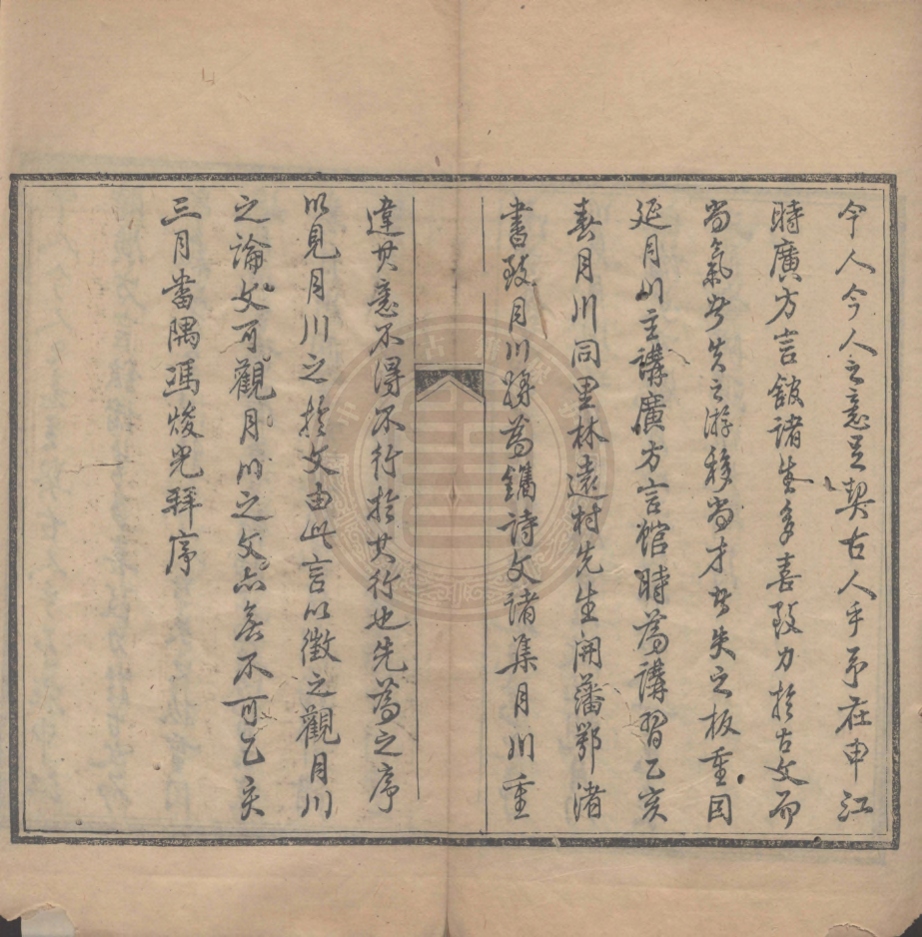 今人今人之意足契古人乎予在申江
時廣方言館諸生多喜致力於古文而
尚氣者失之游移尚才者失之板重因
延月川主講廣方言館時為講習乙亥
春月川同里林遠村先生開藩鄂渚
書致月川將為鐫詩文諸集月川重
違其意不得不行於其行也先為之序
以見月川之於文由此言以徵之觀月川
之論文可觀月川之文亦無不可乙亥
三月蕾隅馮焌光拜序